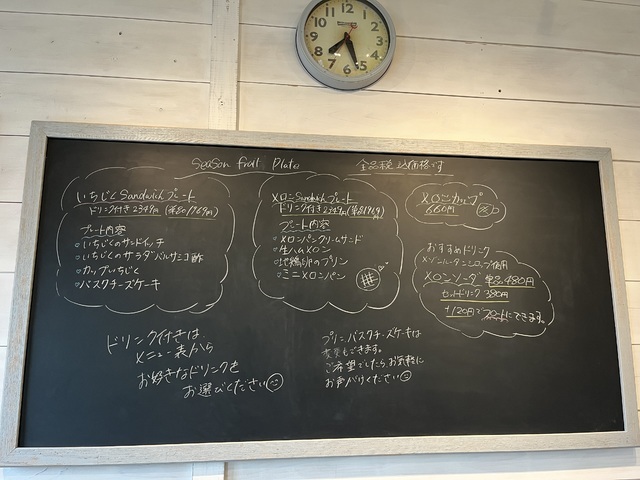 Season fruit Plate
全品税込価格です
いちじくSandwichプレート
ドリンク付き2349円(単品1969円)
プレート内容
○いちじくのサンドイッチ
○いちじくのサラダバルサミコ酢
○カップいちじく
○バスクチーズケーキ
メロンSandwichプレート
ドリンク付き2349円(単品1969円)
プレート内容
○メロンパンクリームサンド
○生ハムメロン
○地鶏卵のプリン
○ミニメロンパン
メロンカップ
660円
おすすめドリンク
メゾンルータンシロップ使用
メロンソーダ 単品480円
セットドリンク 380円
+120円でフロートにできます。
ドリンク付きは
メニュー表から
お好きなドリンクを
お選びください
プリン、バスクチーズケーキは
変更もできます。
ご希望でしたらお気軽に
お声がけください
12
1
2
3
4
5
6
7
8
9
10
11